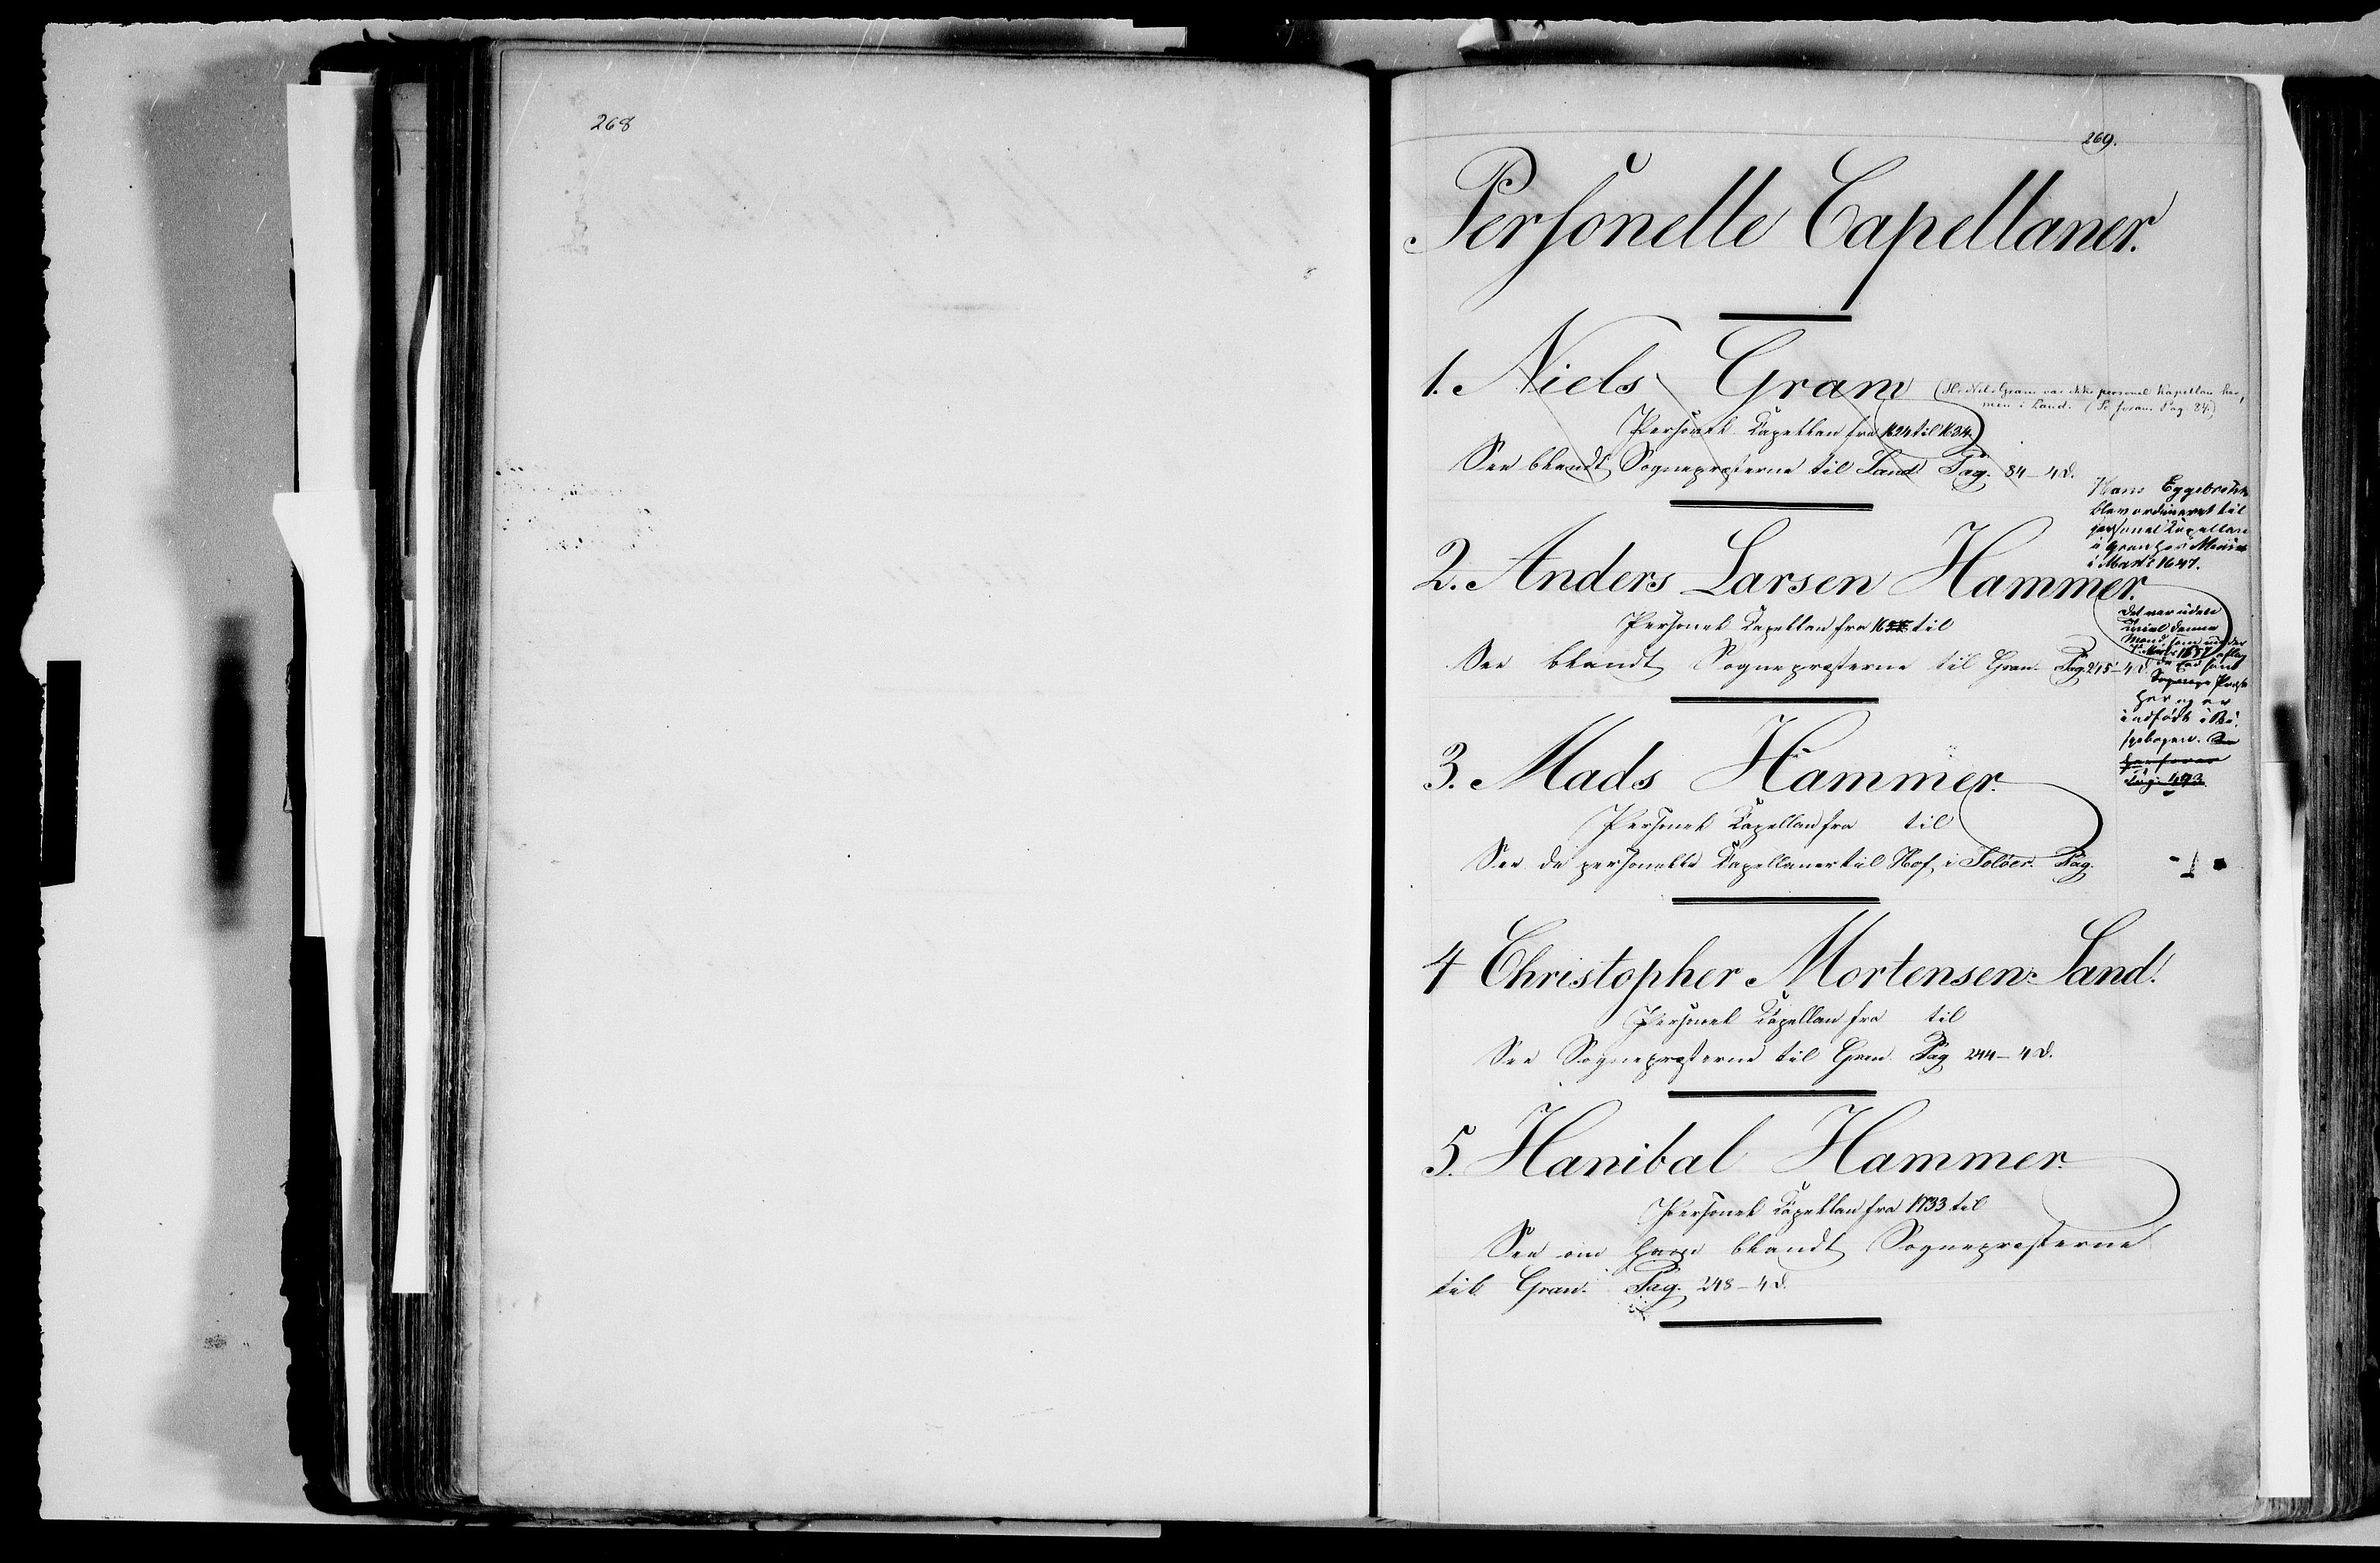 268
269.
Personelle Capellaner.
1. Niels Gram
(Hr. Niels Gram var ikke personel Kapellan her,
men i Land. (Se foran Pag. 84.)
Personel Kapellan fra 1624 til 1634.
See blandt Sognepræsterne til Land Pag. 84 – 4 d.
Hans Eggebretsen
blev ordineret til
personel Kapellan
i Gran hos
i 1647.
2. Anders Larsen Hammer.
Personel Kapellan fra til
See blandt Sognepræsterne til Gran. Pag. 245 – 4 d.
Det var uden
Tvivl denne
Mand som under
1657 aflag
de Eed som
Præst
her og er
indført i Bi-
spebogen. See
herforan
Pag. 493.
3. Mads Hammer.
Personel Kapellan fra til
See de personelle Kapellaner til Hof i Soløer. Pag.
4 Christopher Mortensen Land.
Personel Kapellan fra til
See Sognepræsterne til Gran. Pag 244 – 4 d.
5. Hanibal Hammer.
Personel Kapellan fra 1733 til
See om ham blandt Sognepræsterne
til Gran. Pag. 248 – 4 d.